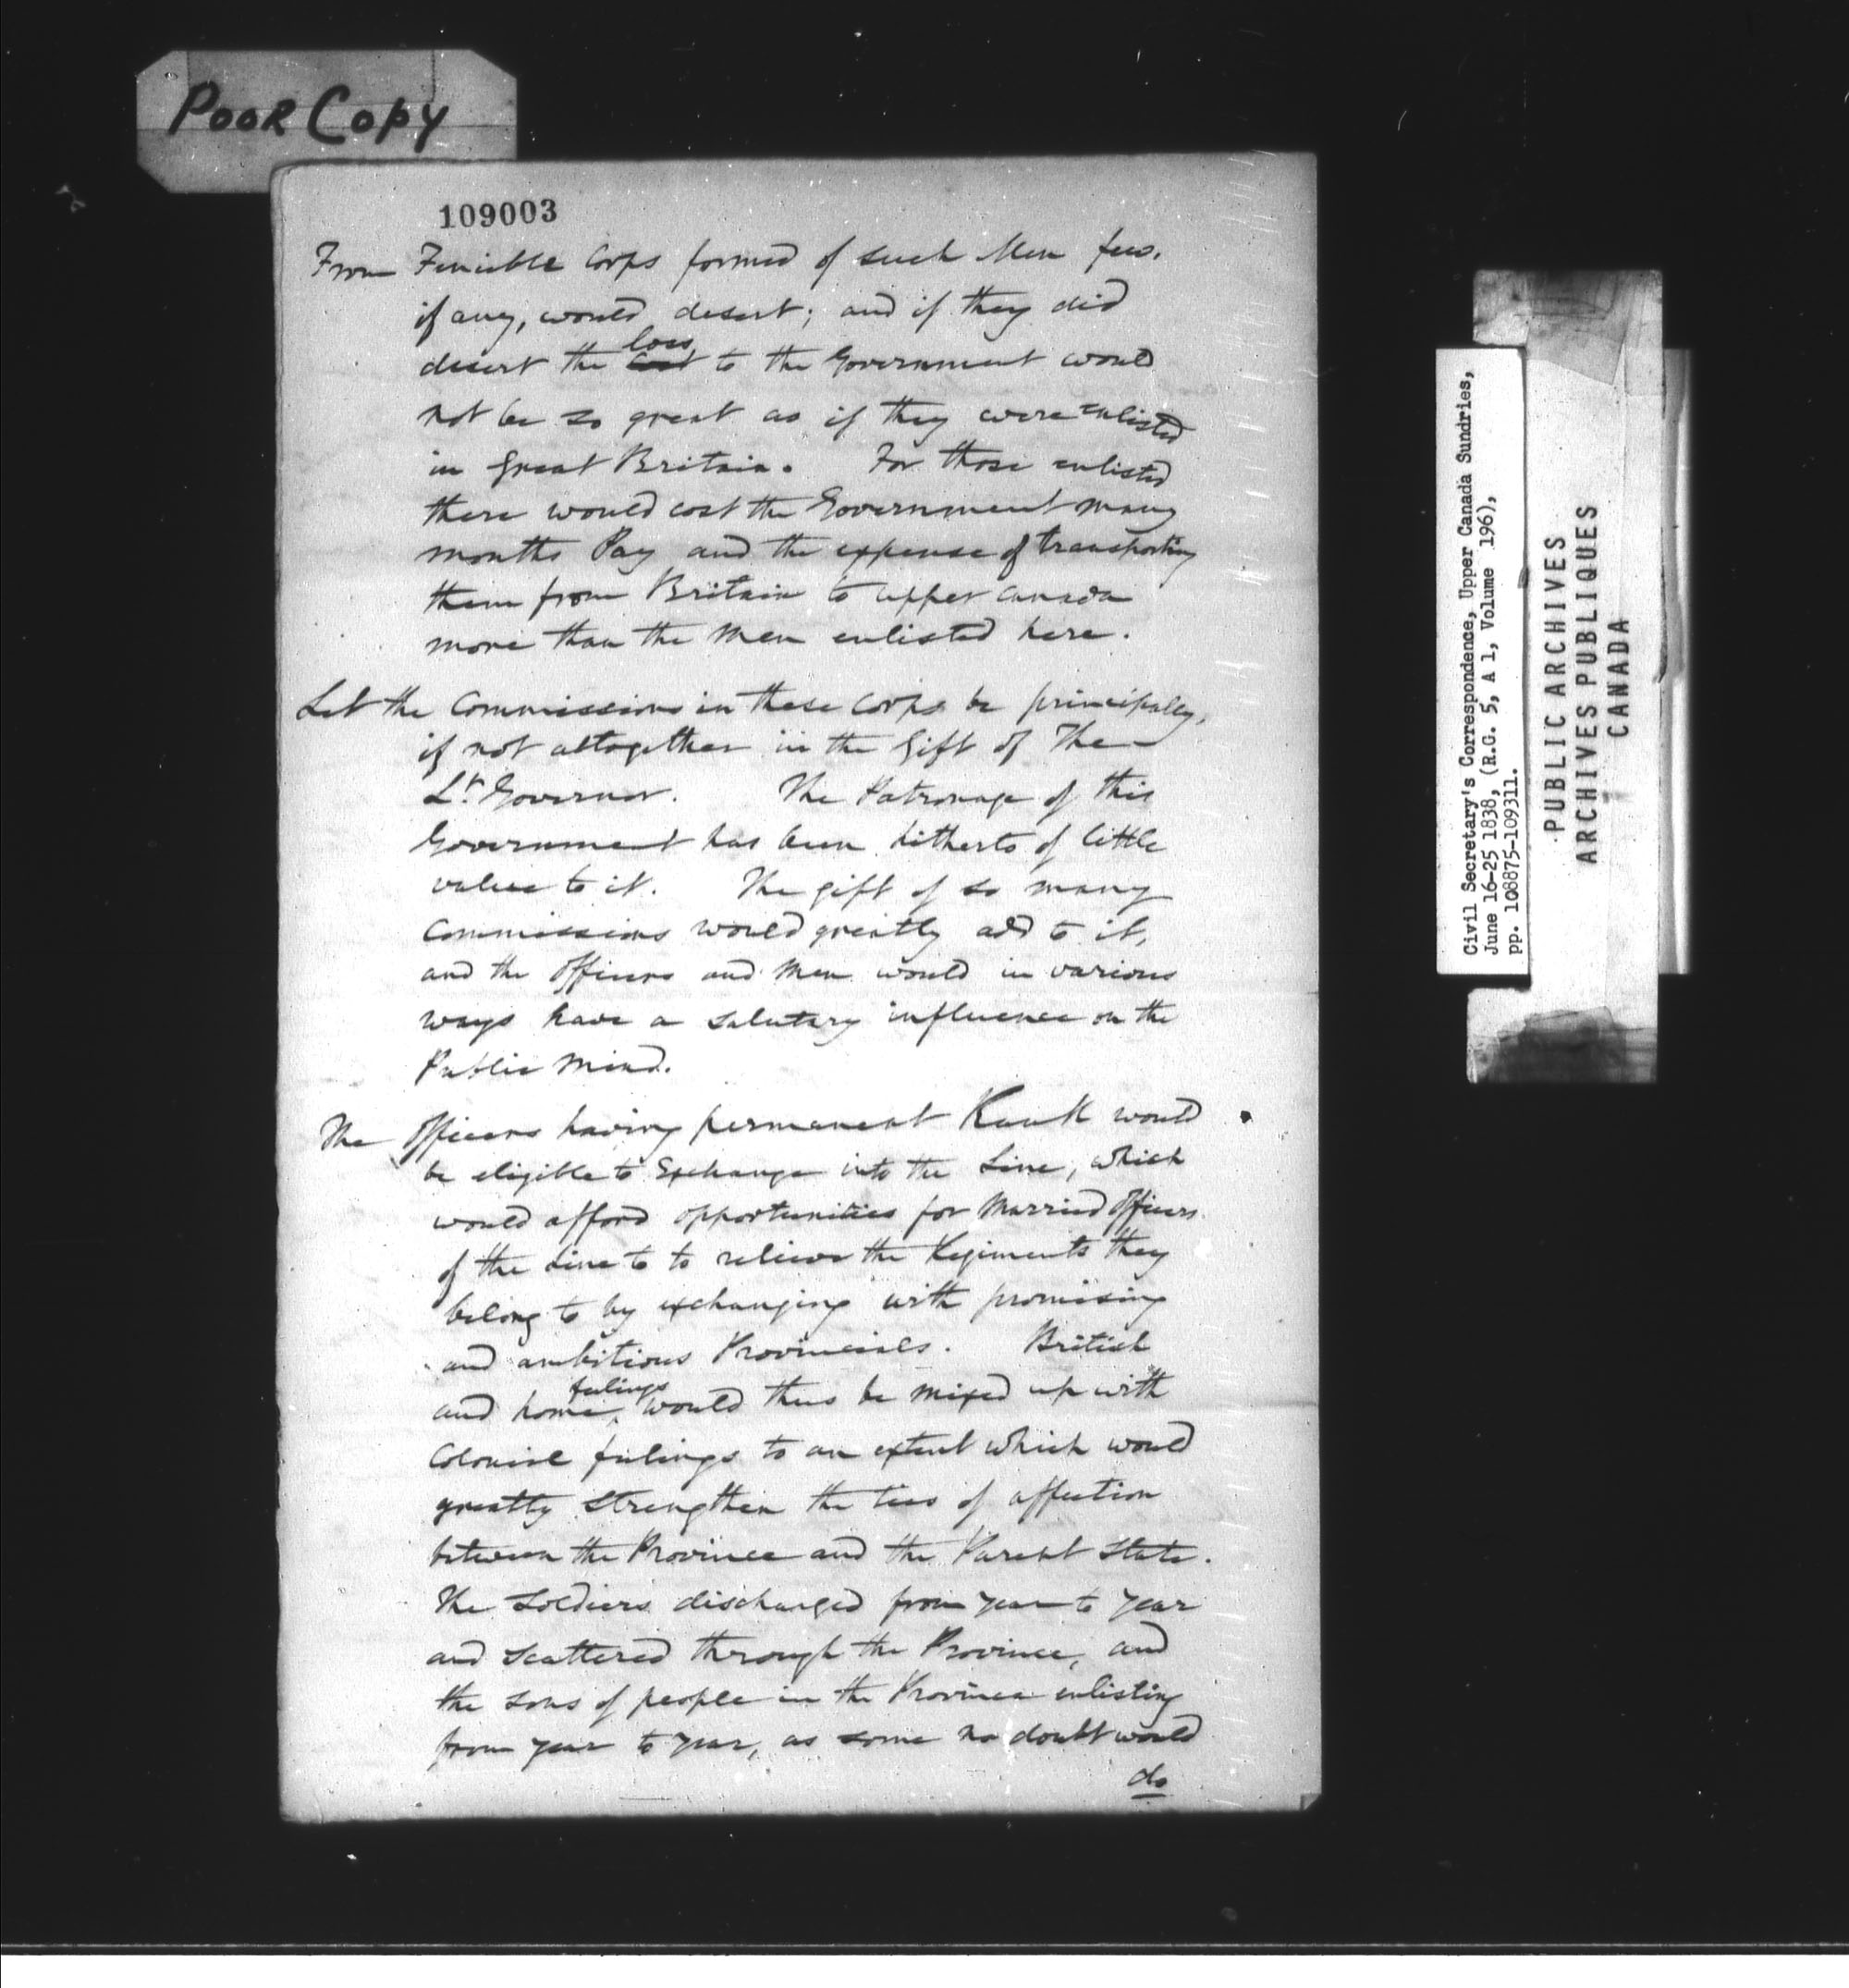 Poor Copy
109003
From Fencible Corps formed of such Men few,
if any, would desert; and if they did
loss
desert the cost to the Government would
not be so great as if they were enlisted
in Great Britain. For those enlisted
there would cost the Government many
months Pay and the expense of transporting
them from Britain to upper Canada
more than the Men enlisted here.
Let the Commissions in these Corps be principally,
if not altogether in the Gift of The
Lt. Governor. The Patronage of this
Government has been hitherto of little
value to it. The gift of so many
Commissions would greatly add to it,
and the Officers and Men would in various
ways have a salutary influence on the
Public Mind.
The Officers having permanent Rank would
be eligible to Exchange into the Line, which
would afford opportunities for Married Officers
of the Line to to relieve the Regiments they
belong to by exchanging with promising
and ambitious Provincials. British
feelings
and home, would thus be mixed up with
Colonial feelings to an extent which would
greatly strengthen the ties of affection
between the Province and the Parent State.
The Soldiers discharged from year to year
and scattered through the Province, and
the sons of people in the Province enlisting
from year to year, as some no doubt would
do
Civil Secretary's Correspondence, Upper Canada Sundries,
June 16-25 1838, (R.G. 5, A 1, Volume 196),
pp. 108875-109311.
PUBLIC ARCHIVES
ARCHIVES PUBLIQUES
CANADA